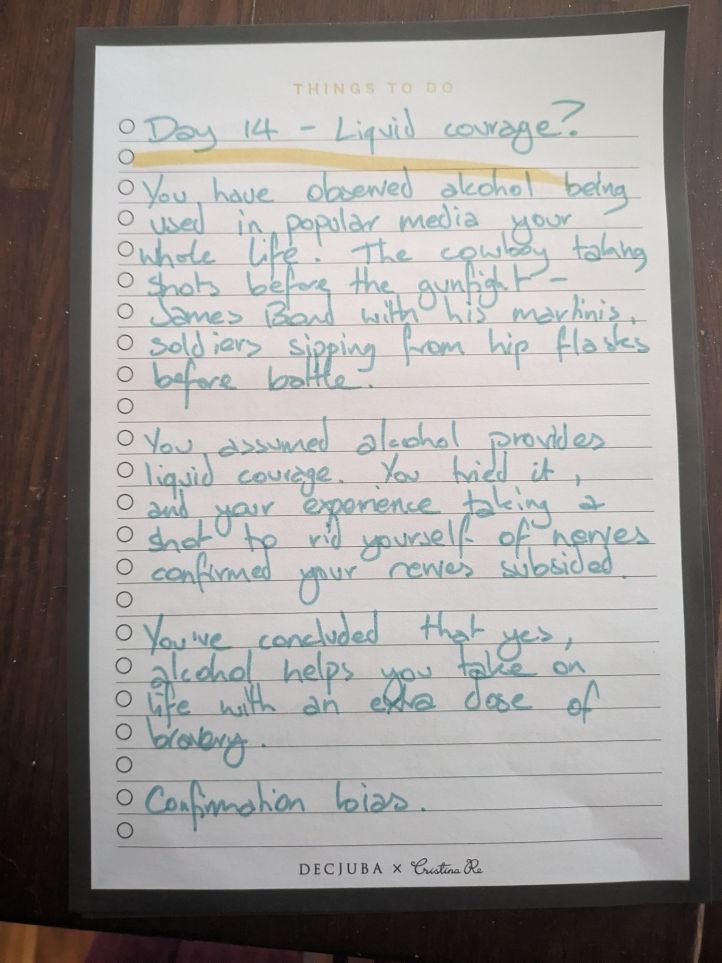 THINGS TO DO
Day 14 - Liquid courage?
You have observed alcohol being
used in popular media your
whole life. The cowboy taking
shots before the gunfight -
James Bond with his martinis,
soldiers sipping from hip flasks
before battle.
You assumed alcohol provides
liquid courage. You tried it,
and your experience taking a
shot to rid yourself of nerves
confirmed your nerves subsided.
You've concluded that yes,
alcohol helps you take on
life with an extra dose of
bravery.
Confirmation bias.
DECJUBA x Cristina Re